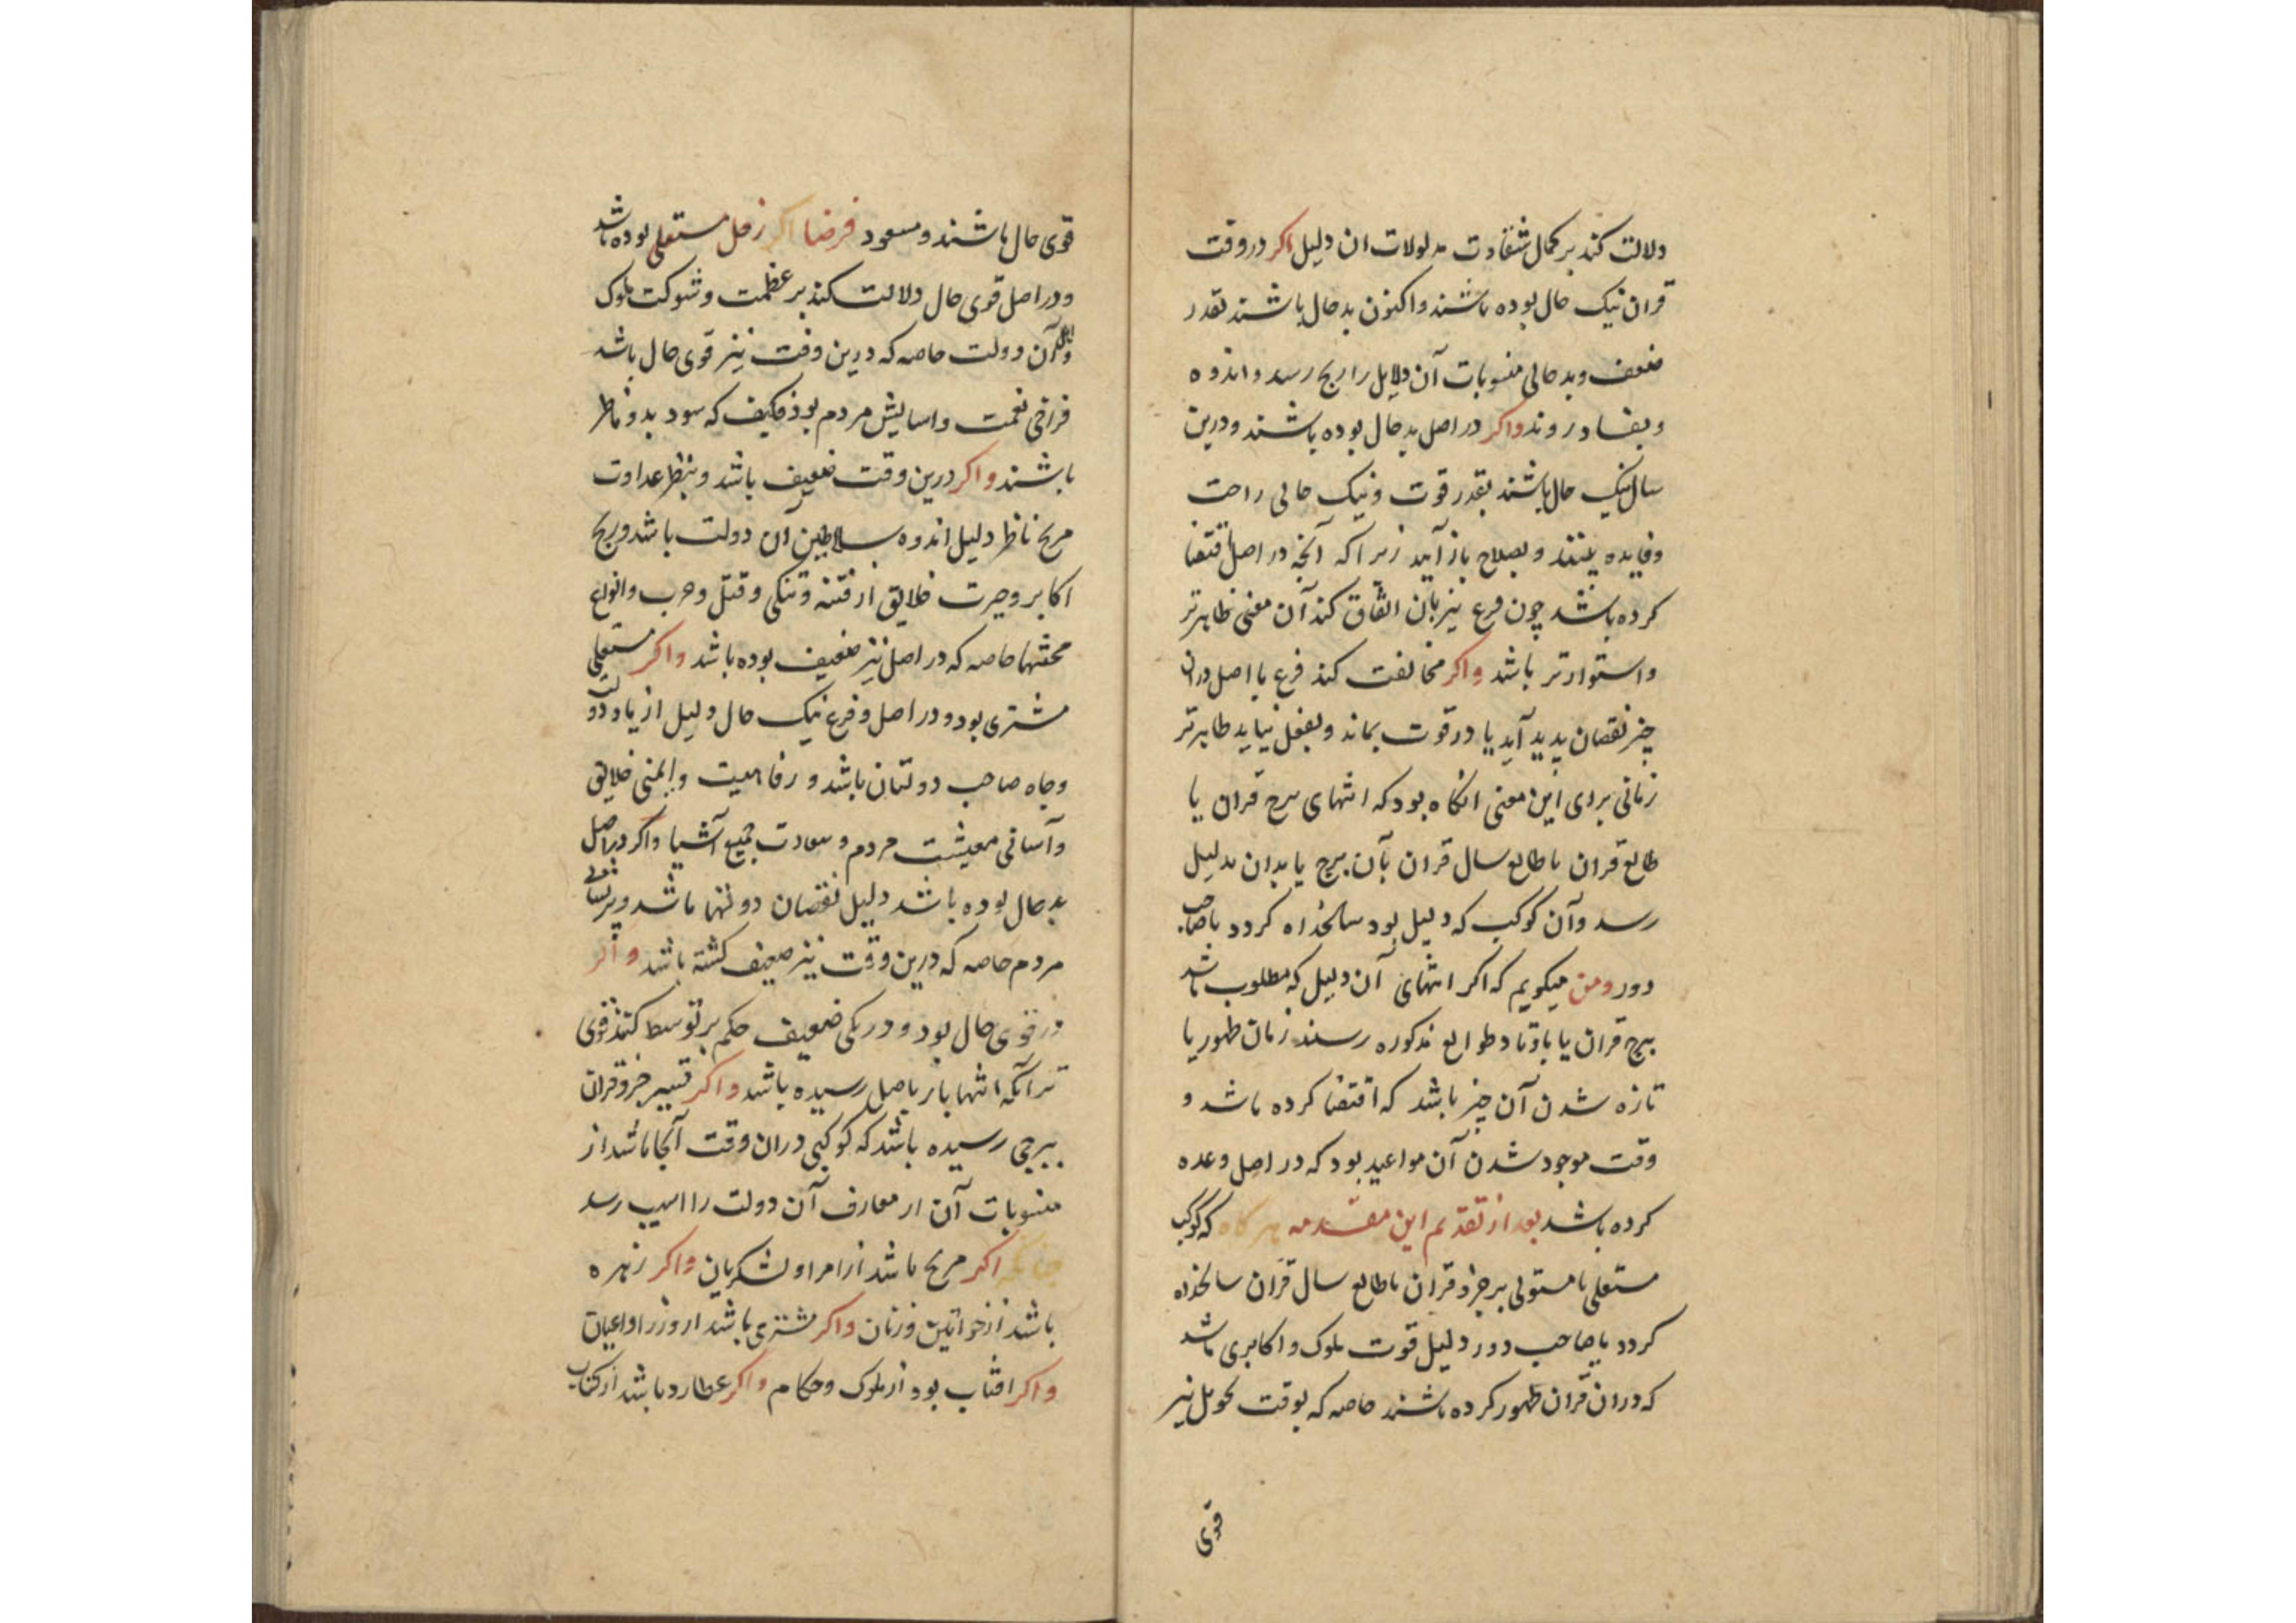 دلالت کند بر کمال شقاوت مدلولات ان دلیل اکر در وقت
قران نیک حال بوده باشند و اکنون بد حال باشند بقدر
ضعف و بد حالی منسوبات آن دلایل را رنج رسد و اندوه
و بفساد روند واکر در اصل بد حال بوده باشند و درین
سال نیک حال باشند بقدر قوت و نیک حالی راحت
و فایده بینند و بصلاح باز آیند زیرا که آنچه در اصل اقتضا
کرده باشد چون فرع نیز بان اتفاق کند آن معنی ظاهرتر
و استوارتر باشد واکر مخالفت کند فرع با اصل دران
چیز نقصان پدید آید یا در قوت بماند و بفعل نیاید ظاهرتر
زمانی برای این معنی انکاه بود که انتهای برج قران یا
طالع قران یا طالع سال قران بآن برج یا بدان دلیل
رسد و آن کوکب که دلیل بود سالخداه کردد یا صاحب
دور ومن میکویم که اکر انتهای آن دلیل که مطلوب باشد
ببرج قران یا باوتاد طوالع مذکوره رسند زمان ظهور یا
تازه شدن آن چیز باشد که اقتضا کرده باشد و
وقت موجود شدن آن مواعید بود که در اصل وعده
کرده باشد بعد از تقدیم این مقدمه هر کاه که کوکب
مستعلی یا مستولی بر جزو قران یا طالع سال قران سالخداه
کردد یا صاحب دور دلیل قوت ملوک و اکابری باشد
که دران قران ظهور کرده باشند خاصه که بوقت تحویل نیز
قوی
قوی حال باشند و مسعود فرضا اکر زحل مستعلی بوده باشد
و در اصل قوی حال دلالت کند بر عظمت و شوکت ملوک
آن دولت خاصه که درین وقت نیز قوی حال باشد
فراخی نعمت و اسایش مردم بود فکیف که سعود بدو ناظر
باشند واکر درین وقت ضعیف باشد و بنظر عداوت
مریخ ناظر دلیل اندوه سلاطین آن دولت باشد و رنج
اکابر و حیرت خلایق از فتنه و تنکی و قتل و حرب و انواع
محنتها خاصه که در اصل نیز ضعیف بوده باشد واکر مستعلی
مشتری بود و در اصل و فرع نیک حال دلیل ازیاد دولت
و جاه صاحب دولتان باشد و رفاهیت و ایمنی خلایق
و آسانی معیشت مردم و سعادت جمیع اشیا واکر در اصل
بد حال بوده باشد دلیل نقصان دولتها باشد و پریشانی
مردم خاصه که درین وقت نیز ضعیف کشته باشد واکر
در قوی حال بود و در یکی ضعیف حکم بر توسط کنند قوی
تر آنکه انتها باز باصل رسیده باشد واکر تسییر جزو قران
ببرجی رسیده باشد که کوکبی دران وقت آنجا باشد از
منسوبات آن از معارف آن دولت را اسیب رسد
چنانکه اکر مریخ باشد از امرا و لشکریان واکر زهره
باشد از خواتین و زنان واکر مشتری باشد از وزرا و اعیان
واکر افتاب بود از ملوک و حکام واکر عطارد باشد از کتاب